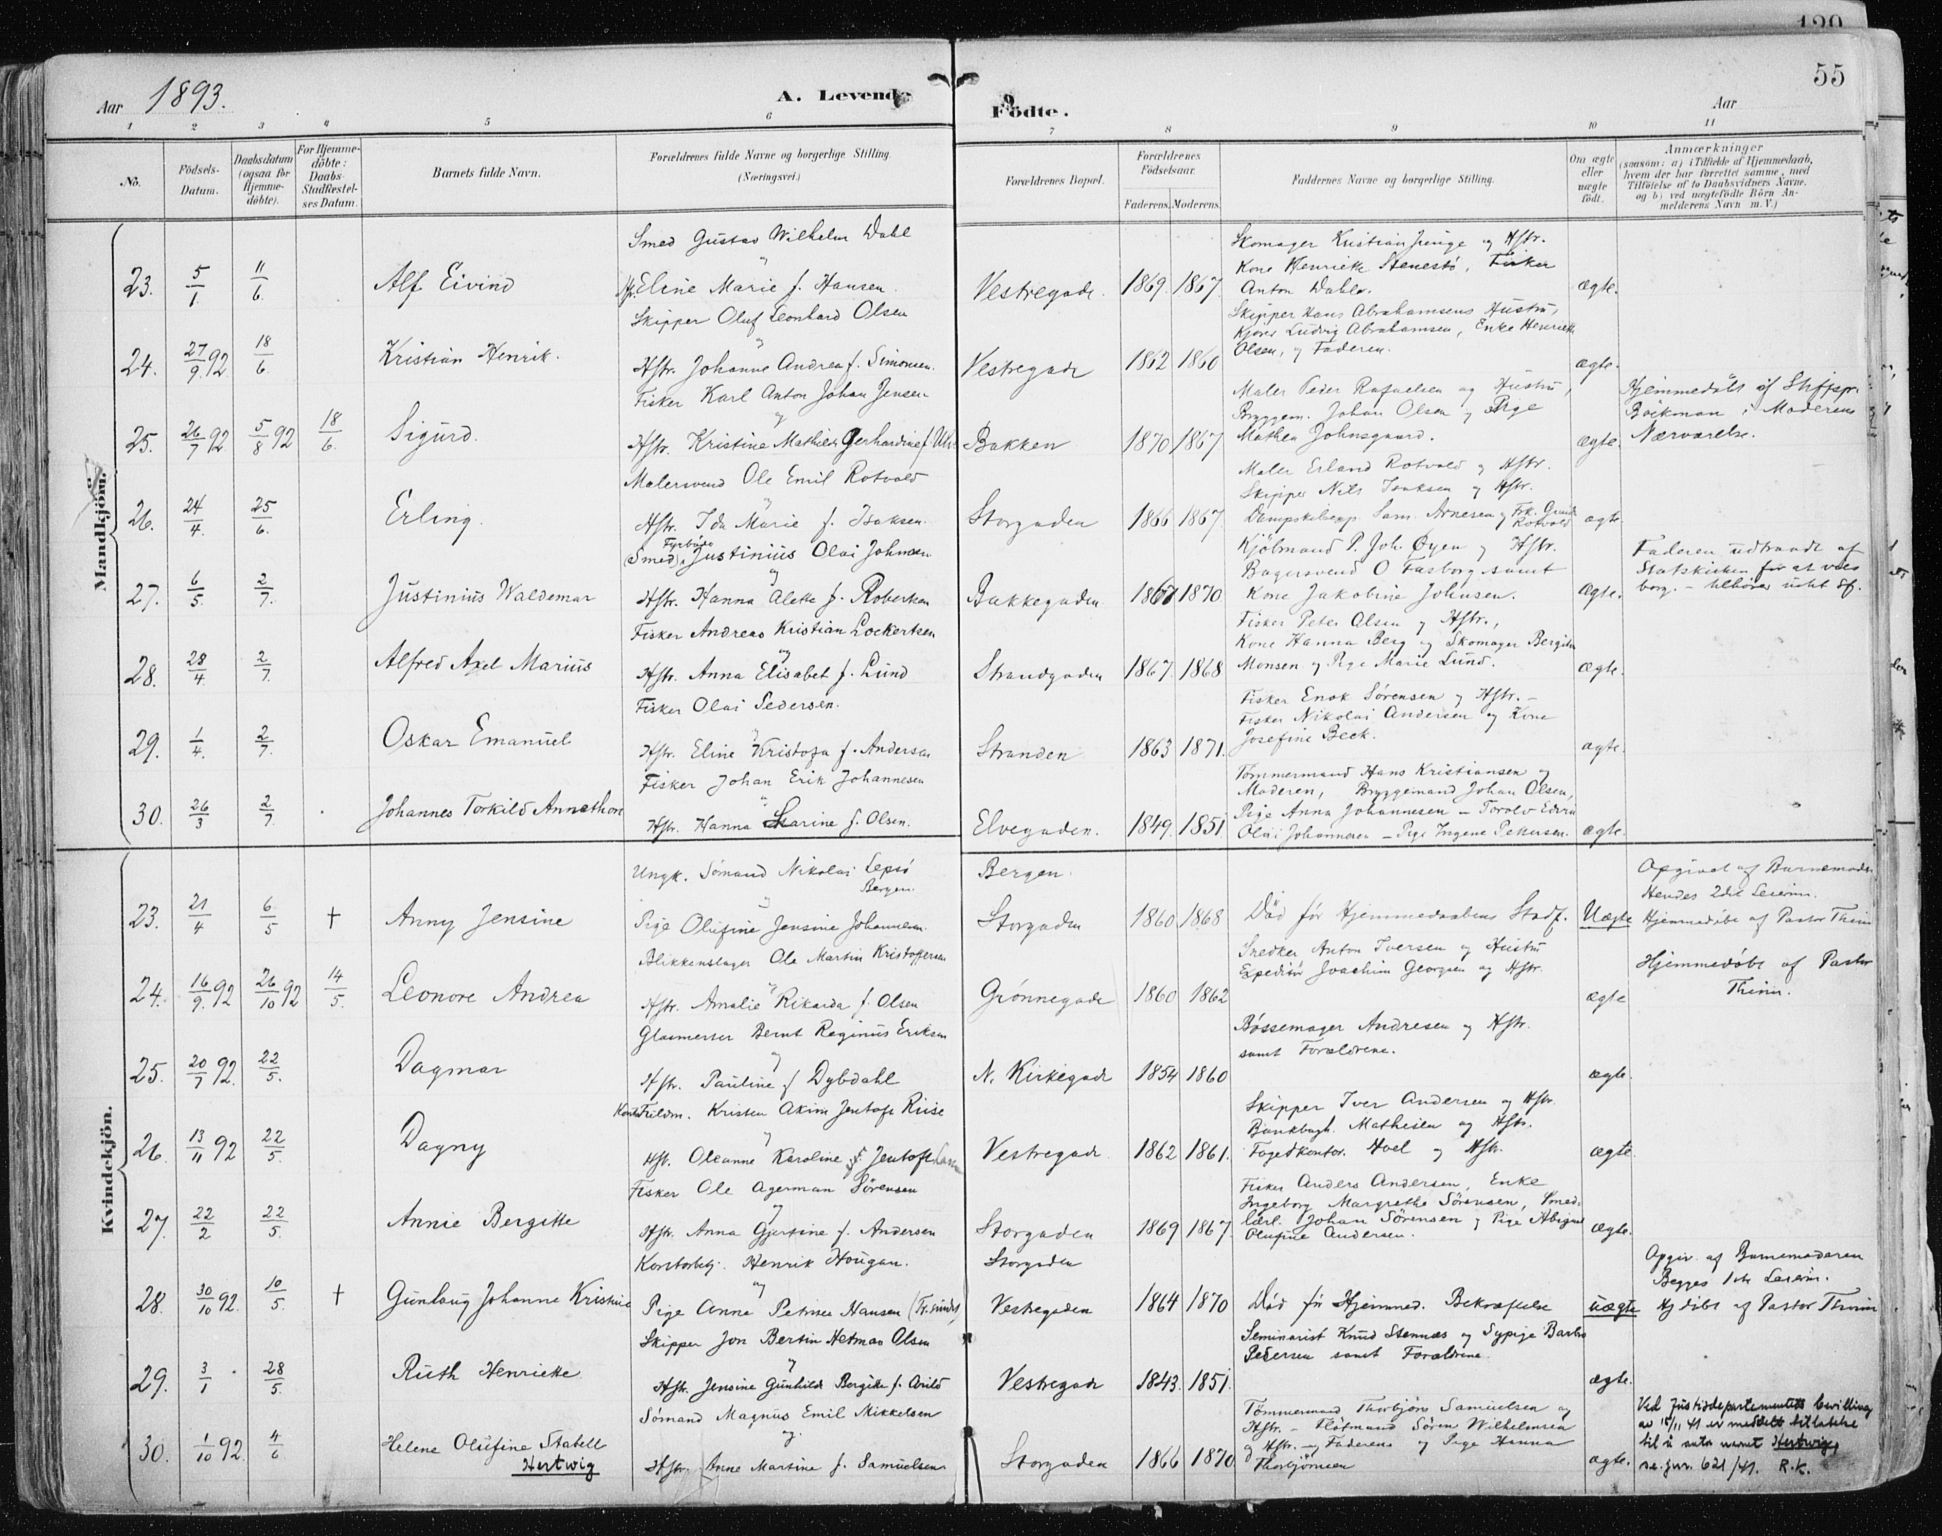 120
55
Aar 1893.
A. Levende Födte.
Aar
1 2 3 4 5 6 7 8 9 10 11
No.
Födsels-Datum.
Daabsdatum (ogsaa for Hjemme-döbte).
For Hjemme-döbte: Daabs-Stadfæstel-ses Datum.
Barnets fulde Navn.
Forældrenes fulde Navne og borgerlige Stilling. (Næringsvei.)
Forældrenes Bopæl.
Forældrenes Födselsaar.
Faderens. Moderens.
Faddernes Navne og borgerlige Stilling.
Om ægte eller uægte födt.
Anmærkninger
(saasom: a) i Tilfælde af Hjemmedaab,
hvem der har forrettet samme, med
Tilföielse af to Daabsvidners Navne,
og b) ved uægtefödte Börn An-
melderens Navn m. V.)
Mandkjön.
Smed Gustav Wilhelm Dahl
Skomager Kristian Junge og Hstr.
Kone Henrikke Stenestø, Fisker
23. 5/1. 11/6. Alf Eivind Eline Marie f. Hansen. Vestregade. 1869. 1867. Anton Dahl. ægte.
Skipper Oluf Leonhard Olsen
Skipper Hans Abrahamsens Hustru,
Ludvig Abrahamsen, Enke Henrikke
24. 27/9 92 18/6. Kristian Henrik. Hstr. Johanne Andrea f. Simonsen. Vestregade 1862 1860 Olsen, og Faderen. ægte.
Fisker Karl Anton Johan Jensen
og
Maler Peder Rafaelsen og Hustru,
Bryggem. Johan Olsen og Pige
25. 26/7 92 5/8 92 18/6. Sigurd. Hstr. Kristine Mathilde Gerhardine f. Bakken 1870 1867 Mathea Johnsgaard. ægte.
Hjemmedöbt af Stiftspr.
Böckman i Moderens
Nærværelse.
Malersvend Ole Emil Rotvold
Maler Erland Rotvold og Hstr.
Skipper Nils Isaksen og Hstr.
26. 24/4. 25/6. Erling. Hstr. Ida Marie f. Isaksen. Storgaden 1866 1867. Sam. Arnesen og Frk. Rotvold ægte
Fyrböder
Smed, Justinius Olai Johnsen
og
Kjölmand P. Joh. Øyen og Hstr.
Bagersvend O Fasborg samt
27. 6/5. 2/7. Justinius Waldemar Hstr. Hanna Aletta f. Robertsen Bakkegaden 1867 1870 Kone Jakobine Johnsen. ægte.
Faderen udtraadt af
Statskirken for at være
borg. – tilhører intet Sf.
Fisker Andreas Kristian Lockertsen
og
Fisker Peter Olsen og Hstr.,
Kone Hanna Berg og Skomager Bergiton
28. 28/4. 2/7. Alfred Axel Marius Hstr. Anna Elisabet f. Lund Strandgaden 1867. 1868 Monsen og Pige Marie Lund. ægte.
Fisker Olai Pedersen.
Fisker Enok Sørensen og Hstr. –
Fisker Nikolai Andersen og Kone
29. 1/4. 2/7. Oskar Emanuel Hstr. Eline Kristofa f. Andersen Stranden 1863 1871. Josefine Beck. ægte.
Fisker Johan Erik Johannesen
Tømmermand Hans Kristiansen og
Moderen, Bryggemand Johan Olsen,
Pige Anna Johannesen – Torolv Edvin
30. 26/3 2/7. Johannes Torkild Annathon Hstr. Hanna Karine f. Olsen. Elvegaden. 1849. 1851 Olai Johannesen – Pige Ingine Pettersen. ægte.
Kvindekjön.
Ungk. Sømand Nikolai Lepsö
Bergen
Bergen.
23. 21/4 6/5 † Anny Jensine Pige Olufine Jensine Johannesen. Storgaden 1860 1868 Död för Hjemmedaabens Stadf. Uægte
Opgivet af Barnemoderen
Hendes 2det Leierm.
Hjemmedöbt af Pastor Thinn
Blikkenslager Ole Martin Kristoffersen
Snedker Anton Iversen og Hustru
Expeditör Joachim Georgsen og Hstr.
24. 16/9. 92 26/10 92 14/5. Leonore Andrea Hstr. Amalie Rikarda f. Olsen Grønnegade 1860 1862 ægte
Hjemmedöbt af Pastor
Thinn.
Glasmester Bernt Reginius Eriksen
og
Bössemager Andresen og Hstr.
samt Forældrene.
25. 20/7 92. 22/5. Dagmar Hstr. Pauline f Dybdahl N. Kirkegade 1854 1860 ægte.
Kristen Akim Jentoft Riise
og
Skipper Iver Andersen og Hstr.
Bankbogh. Mathisen og Hstr.
26. 13/11 92 22/5. Dagny Hstr. Oleanne Karoline f. Jentoft Vestregade. 1862 1861. Fogedkontor. Hoel og Hstr. ægte
Fisker Ole Agerman Sörensen
og
Fisker Anders Andersen, Enke
Ingeborg Margrethe Sörensen, Smed-
27. 22/2 22/5. Annie Bergitte Hstr. Anna Gjertine f. Andersen Storgaden 1869 1867. lærl. Johan Sörensen og Pige Abigael
Olufine Andersen. ægte.
Henrik Hougan.
og
Storgaden
28. 30/10 92. 10/5. † Gunlaug Johanne Kristine Pige Anna Petrine Hansen (Tr.sund) Vestregaden 1864 1870 Död för Hjemmed. Bekræftelse uægte
Opgiv. af Barnemoderen
Begges 1ste Leierm.
Hj döbt af Pastor Thinn
Skipper Jon Bertin Hetman Olsen
og
Seminarist Knud Stennæs og Sypige Barbro
Pedersen samt Forældrene.
29. 3/1 28/5. Ruth Henriette Hstr. Jensine Gunhilde Bergitte f. Arild Vestregade 1843. 1851. ægte.
Sømand Magnus Emil Mikkelsen
og
Tømmermand Thorbjörn Samuelsen og
Hstr. – Flötmand Sören Wilhelmsen
og Hstr. – Faderen og Pige Hanna
30. 1/10 92. 4/6 Helene Olufine Stabell Hertwig Hstr. Anne Martine f. Samuelsen. Storgaden 1866 1870 Thorbjörnsen ægte.
Ved Justisdepartementets bevilling
av 15/11 41 er meddelt tillatelse
til å anta navnet Hertwig,
se. jnr. 621/41. R.K.